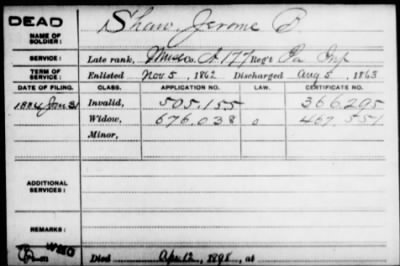 DEAD
NAME OF SOLDIER: Shaw, Jerome B.
SERVICE: Late rank, Musc Co. A, 177 Reg't Pa Inf
TERM OF SERVICE: Enlisted Nov 5, 1862 Discharged Aug 5, 1863
DATE OF FILING. CLASS. APPLICATION NO. LAW. CERTIFICATE NO.
1884 Jan 31 Invalid, 505.155 366.295
Widow, 676.038 o 467.551
Minor,
ADDITIONAL SERVICES:
REMARKS:
Died Apr 12, 1898, at